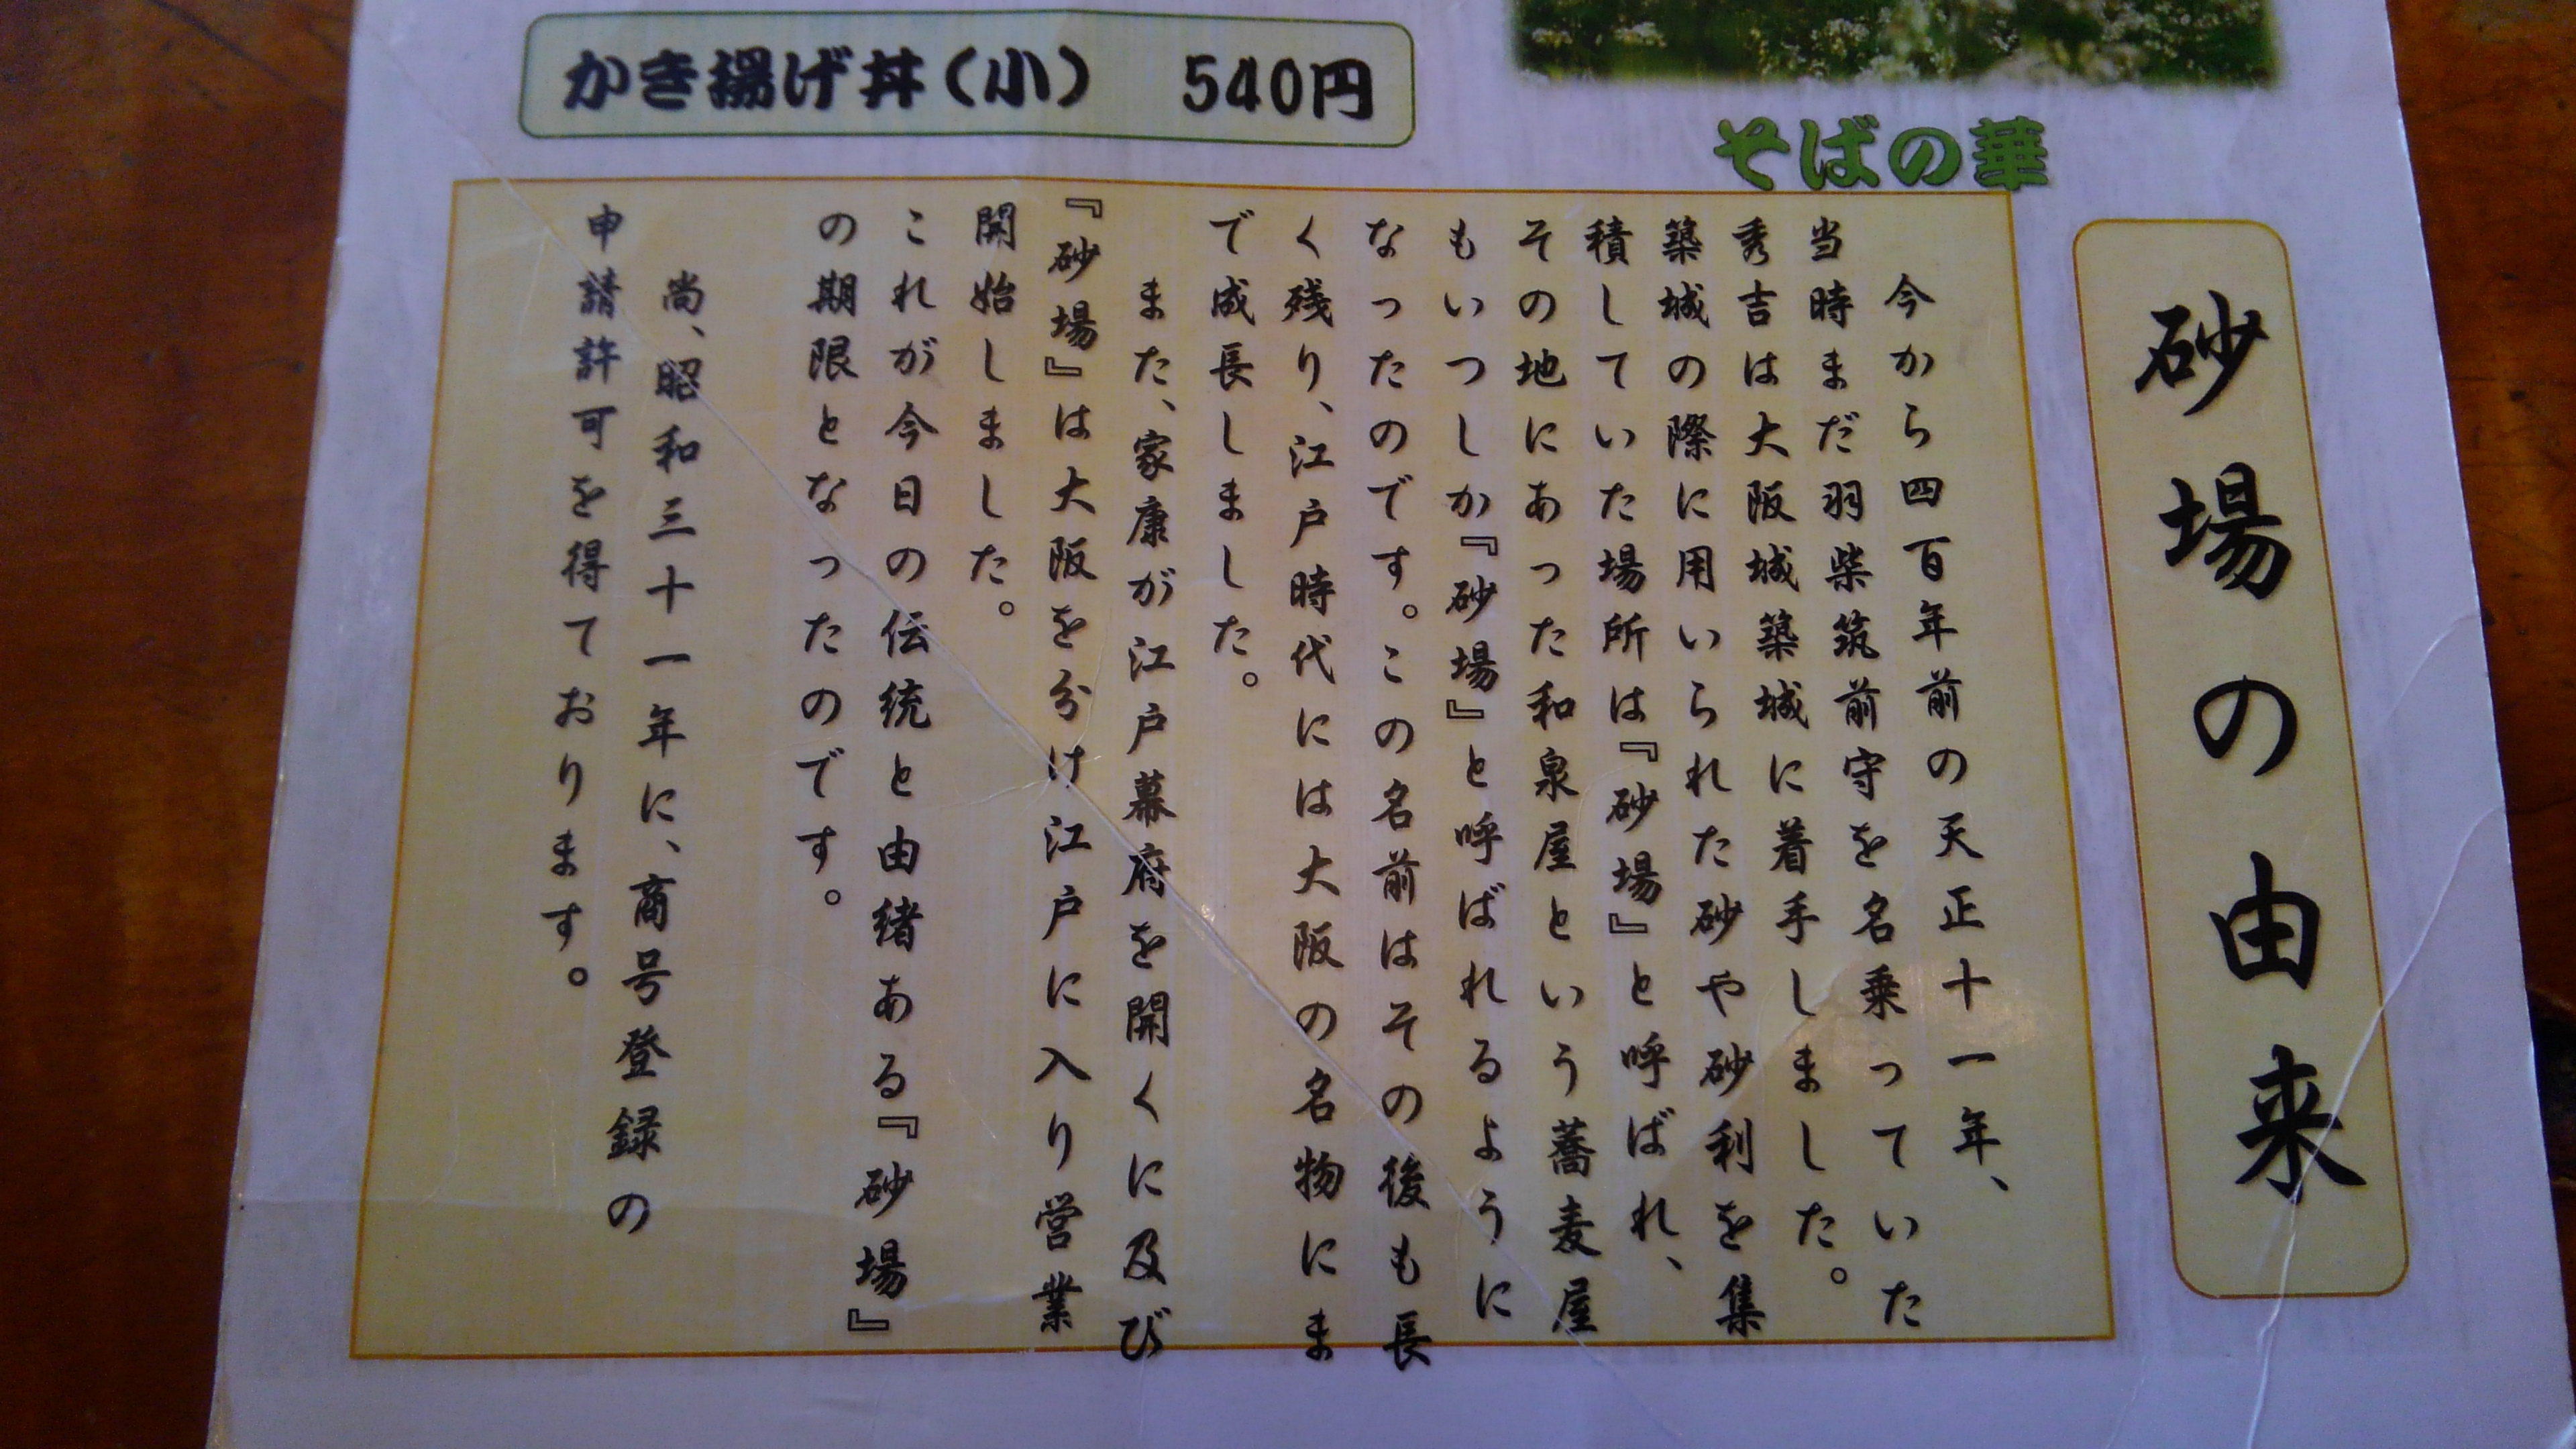 かき揚げ丼(小) 540円
そばの華
砂場の由来
今から四百年前の天正十一年、
当時まだ羽柴筑前守を名乗っていた
秀吉は大阪城築城に着手しました。
築城の際に用いられた砂や砂利を集
積していた場所は『砂場』と呼ばれ、
その地にあった和泉屋という蕎麦屋
もいつしか『砂場』と呼ばれるように
なったのです。この名前はその後も長
く残り、江戸時代には大阪の名物にま
で成長しました。
また、家康が江戸幕府を開くに及び
『砂場』は大阪を分け江戸に入り営業
開始しました。
これが今日の伝統と由緒ある『砂場』
の期限となったのです。
尚、昭和三十一年に、商号登録の
申請許可を得ております。